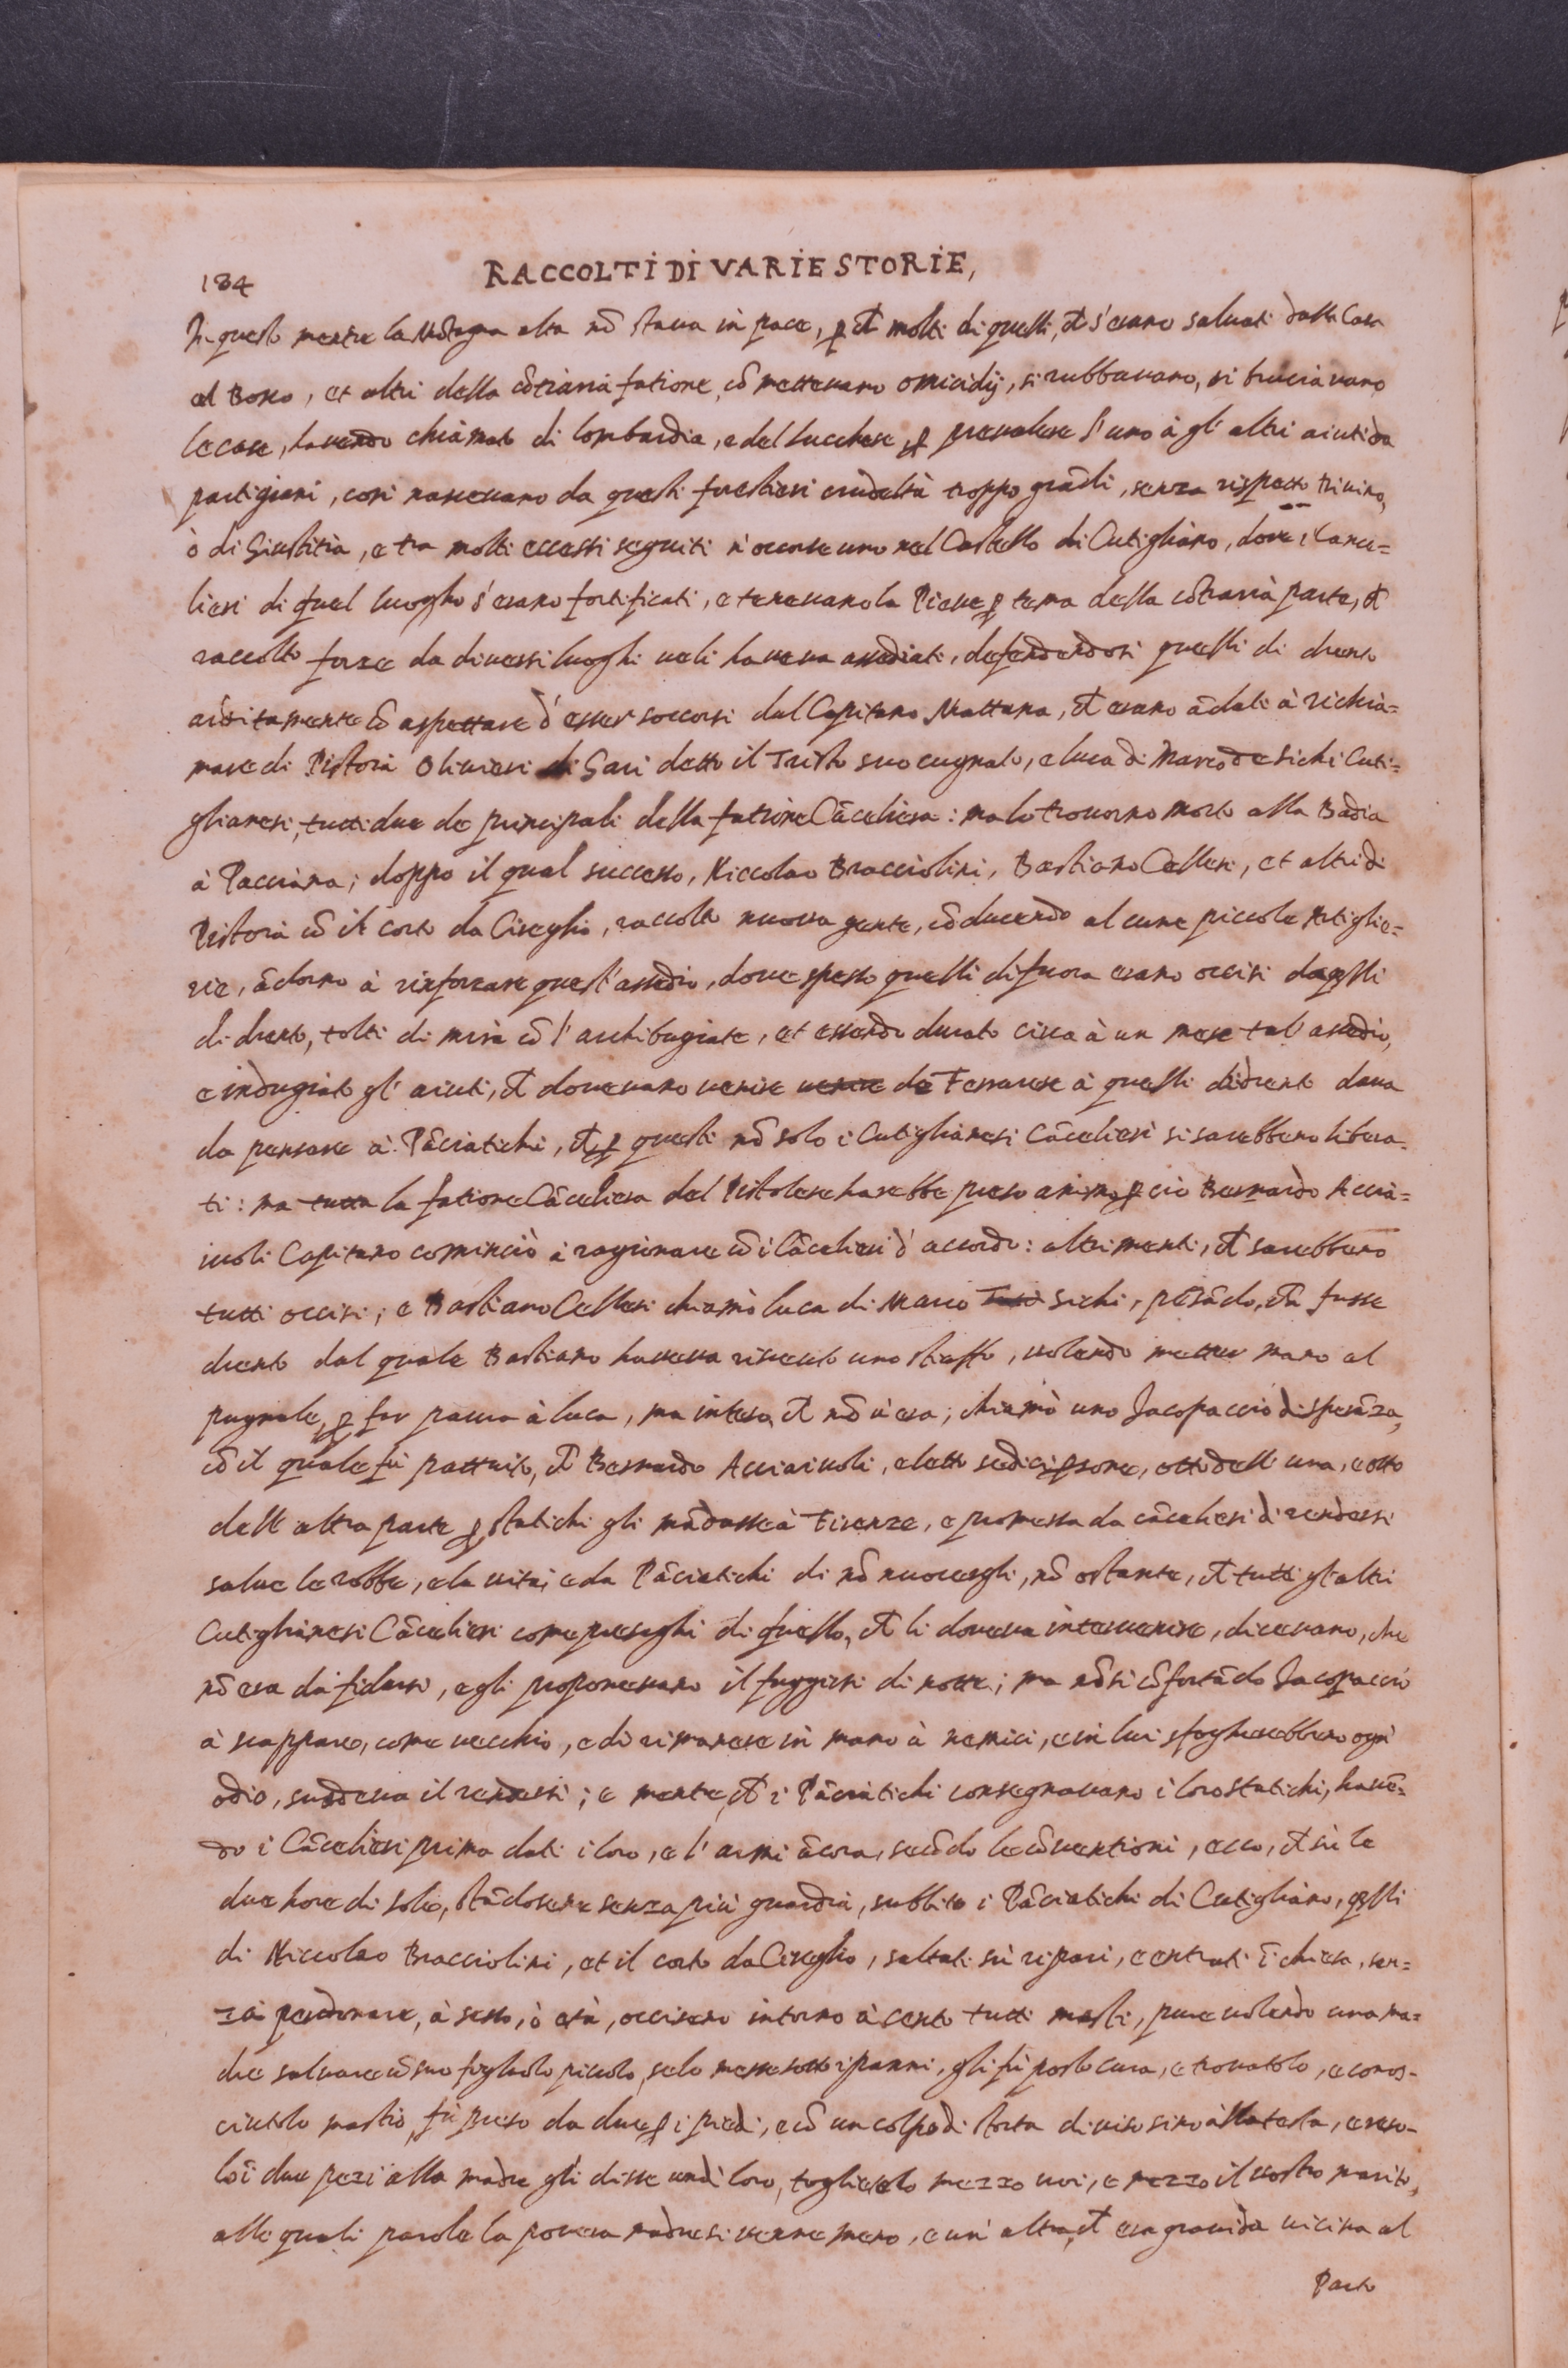 184 RACCOLTI DI VARIE STORIE,
In questo mentre la Mōtagna alta nō staua in pace, ꝑ cħ molti di quelli, cħ s'erano saluati dalla Casa
al Bosco, et altri della cōtraria fatione, cōmetteuano omicidij, si rubbauano, si bruciauano
le case, hauendo chiamato di lombardia, e del lucchese ꝑ preualere l'uno à gl'altri aiuti da
partigiani, cosi nasceuano da questi forestieri crudeltà troppo grādi, senza rispetto Diuino,
ò di Giustitia, e tra molti eccessi seguiti n'occorse uno nel Castello di Cutigliano, doue i Cance=
lieri di quel luogho s'erano fortificati, e teneuano la Pieue ꝑ tema della cōtraria parte, cħ
raccolto forze da diuersi luoghi ueli haueua assediati, defendendosi quelli di drento
arditamente cō aspettare d'esser soccorsi dal Capitano Mattana, cħ erano ādati à richia=
mare di Pistoia Oliuieri di Gari detto il Tristo suo cugnato, e luca di Marco de Sichi Cuti=
glianesi, tutti due de principali della fatione Cāceliera: ma lo trouorno morto alla Badia
à Pacciana; doppo il qual successo, Niccolao Bracciolini, Bastiano Cellesi, et altri di
Pistoia cō il corto da Cireglio, raccolto nuoua gente, cōducendo alcune piccole Artiglie=
rie, ādorno à rinforzare quest'assedio, doue spesso quelli di fuora erano occisi da qlli
di drento, tolti di mira cō l'archibugiate, et essendo durato circa à un mese tal'assedio,
e indugiato gl'aiuti, cħ doueuano uenire uenire da Ferrarese à quelli didrento daua
da pensare à Pāciatichi, cħ ꝑ questi nō solo i Cutiglianesi Cācelieri si sarebbero libera-
ti: ma tutta la fatione Cāceliera del Pistolese harebbe preso animo, ꝑ ciò Bernardo Accia=
iuoli Capitano cominciò à ragionare cō i Cācelieri d'accordo: altrimenti, cħ sarebbero
tutti occisi; e Bastiano Cellesi chiamò luca di Marco Sichi, pēsādo, cħ fusse
drento dal quale Bastiano haueua riceuto uno stiaffo, uolendo metter mano al
pugnale, ꝑ far paura à luca, ma inteso, cħ nō u'era; chiamò uno Jacopaccio di sperāza,
cō il quale fù pattuito, cħ Bernardo Acciaiuoli, eletto sedici ꝑsone, otto dell'una, e otto
dell'altra parte ꝑ statichi gli mādasse à Firenze, e promessa da cācelieri di rendersi
salue le robbe, e la uita; e da Pāciatichi di nō nuocergli, nō ostante, cħ tutti gl'altri
Cutiglianesi Cācelieri come presaghi di quello, cħ li doueua interuenire, diceuano, che
nō era da fidarsi, e gli proponeuano il fuggirsi di notte; ma nō si cōfortādo Jacopaccio
à scappare, come uecchio, e di rimanere in mano à nemici, e in lui sfogherebbero ogni
odio, suadeua il rendersi; e mentre, cħ i Pāciatichi consegnauano i loro statichi, hauē-
do i Cācelieri prima dati i loro, e l'armi ācora, secōdo le cōuentioni, ecco, cħ sù le
due hore di sole, stādosene senza più guardia, subbito i Pāciatichi di Cutigliano, qlli
di Niccolao Bracciolini, et il corto da Cireglio, saltati sù ripari, e entrati ī chiesa, sen=
za perdonare, à sesso, ò età, occisero intorno à cento tutti masti, pure uolendo una ma=
dre saluare cō suo figliolo piccolo, se lo messe sotto i panni, gli fù posto cura, e trouatolo, e conos-
ciutolo mastio, fù preso da due ꝑ i piedi, e cō un colpo di storta diuiso sino alla testa, e reso-
lo ī due pezi alla madre gli disse un di loro, toglietelo mezzo uoi, e mezzo il uostro marito,
alle quali parole la pouera madre si uenne meno, e un'altra, cħ era grauida uicina al
Parto